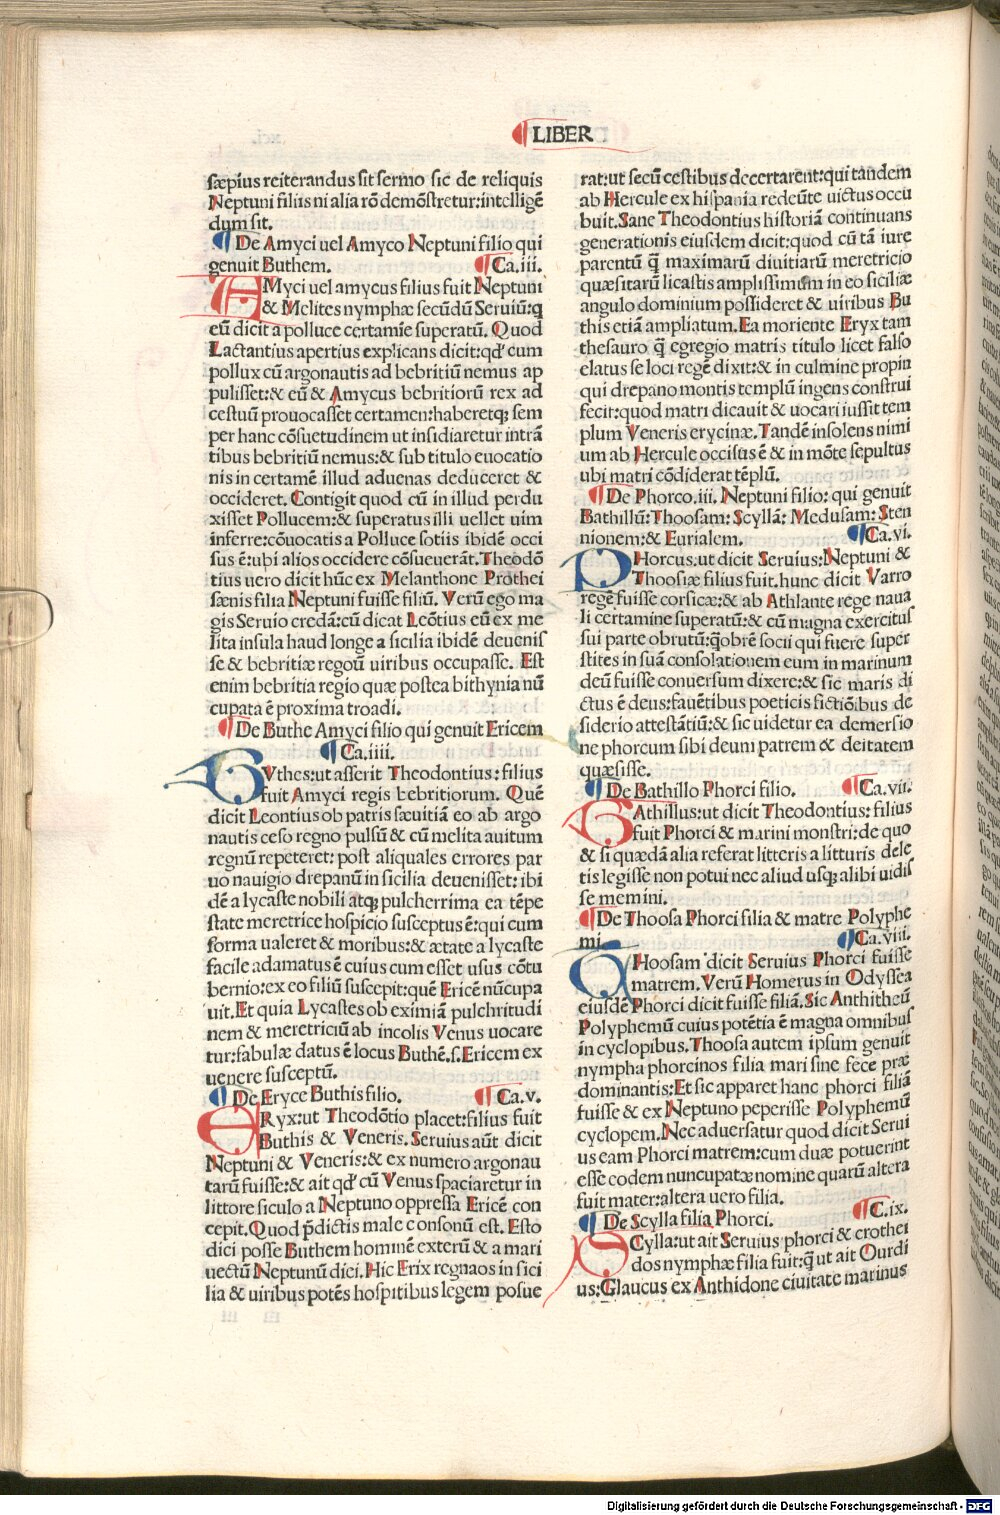 LIBER
sæpius reiterandus sit sermo sic de reliquis
Neptuni filiis ni alia rõ demõstretur: intelligẽ
dum sit.
De Amyci uel Amyco Neptuni filio qui
genuit Buthem. Ca.iii.
AMyci uel amycus filius fuit Neptuni
& Melites nymphæ secũdũ Seruiũ: q
eũ dicit a polluce certamĩe superatũ. Quod
Lactantius apertius explicans dicit: qd' cum
pollux cũ argonautis ad bebritiũ nemus ap
pulisset: & eũ & Amycus bebritiorũ rex ad
cestuũ prouocasset certamen: haberetq; sem
per hanc cõsuetudinem ut insidiaretur intrã
tibus bebritiũ nemus: & sub titulo euocatio
nis in certamẽ illud aduenas deduceret &
occideret. Contigit quod cũ in illud perdu
xisset Pollucem: & superatus illi uellet uim
inferre: cõuocatis a Polluce sotiis ibidẽ occi
sus ẽ: ubi alios occidere cõsueuerãt. Theodõ
tius uero dicit hũc ex Melanthone Prothei
sænis filia Neptuni fuisse filiũ. Verũ ego ma
gis Seruio credã: cũ dicat Leõtius eũ ex me
lita insula haud longe a sicilia ibidẽ deuenis
se & bebritiæ regoũ uiribus occupasse. Est
enim bebritia regio quæ postea bithynia nũ
cupata ẽ proxima troadi.
De Buthe Amyci filio qui genuit Ericem
Ca.iiii.
BVthes: ut asserit Theodontius: filius
fuit Amyci regis bebritiorum. Quẽ
dicit Leontius ob patris sæuitiã eo ab argo
nautis ceso regno pulsũ & cũ melita auitum
regnũ repeteret: post aliquales errores par
uo nauigio drepanũ in sicilia deuenisset: ibi
dẽ a lycaste nobili atq; pulcherrima ea tẽpe
state meretrice hospicio susceptus ẽ: qui cum
forma ualeret & moribus: & ætate a lycaste
facile adamatus ẽ cuius cum esset usus cõtu
bernio: ex eo filiũ suscepit: quẽ Ericẽ nũcupa
uit. Et quia Lycastes ob eximiã pulchritudi
nem & meretriciũ ab incolis Venus uocare
tur: fabulæ datus ẽ locus Buthẽ .s. Ericem ex
uenere susceptũ.
De Eryce Buthis filio. Ca.v.
ERyx: ut Theodõtio placet: filius fuit
Buthis & Veneris. Seruius aũt dicit
Neptuni & Veneris: & ex numero argonau
tarũ fuisse: & ait qd' cũ Venus spaciaretur in
littore siculo a Neptuno oppressa Ericẽ con
cepit. Quod p̃dictis male consonũ est. Esto
dici posse Buthem hominẽ exterũ & a mari
uectũ Neptunũ dici. Hic Erix regnaos in sici
lia & uiribus potẽs hospitibus legem posue
rat: ut secũ cestibus decertarent: qui tandem
ab Hercule ex hispania redeũte uictus occu
buit. Sane Theodontius historiã continuans
generationis eiusdem dicit: quod cũ tã iure
parentũ q̃ maximarũ diuitiarũ meretricio
quæsitarũ licastis amplissimum in eo siciliæ
angulo dominium possideret & uiribus Bu
this etiã ampliatum. Ea moriente Eryx tam
thesauro q̃ egregio matris titulo licet falso
elatus se loci regẽ dixit: & in culmine propin
qui drepano montis templũ ingens construi
fecit: quod matri dicauit & uocari iussit tem
plum Veneris erycinæ. Tandẽ insolens nimi
um ab Hercule occisus ẽ & in mõte sepultus
ubi matri cõdiderat tẽplũ.
De Phorco.iii. Neptuni filio: qui genuit
Bathillũ: Thoosam: Scyllã: Medusam: Sten
nionem: & Eurialem. Ca.vi.
PHorcus: ut dicit Seruius: Neptuni &
Thoosiæ filius fuit. hunc dicit Varro
regẽ fuisse corsicæ: & ab Athlante rege naua
li certamine superatũ: & cũ magna exercitus
sui parte obrutũ: qobrẽ socii qui fuere super
stites in suã consolationem eum in marinum
deũ fuisse conuersum dixere: & sic maris di
ctus ẽ deus: fauẽtibus poeticis fictiõibus de
siderio attestãtiũ: & sic uidetur ea demersio
ne phorcum sibi deum patrem & deitatem
quæsisse.
De Bathillo Phorci filio. Ca.vii.
BAthillus: ut dicit Theodontius: filius
fuit Phorci & marini monstri: de quo
& si quædã alia referat litteris a litturis dele
tis legisse non potui nec aliud usq; alibi uidis
se memini.
De Thoosa Phorci filia & matre Polyphe
mi. Ca.viii.
THoosam dicit Seruius Phorci fuisse
matrem. Verũ Homerus in Odyssea
eiusdẽ Phorci dicit fuisse filiã. Sic Anthitheũ
Polyphemũ cuius potẽtia ẽ magna omnibus
in cyclopibus. Thoosa autem ipsum genuit
nympha phorcinos filia mari sine fece præ
dominantis: Et sic apparet hanc phorci filiã
fuisse & ex Neptuno peperisse Polyphemũ
cyclopem. Nec aduersatur quod dicit Serui
us eam Phorci matrem: cum duæ potuerint
esse eodem nuncupatæ nomine quarũ altera
fuit mater: altera uero filia.
De Scylla filia Phorci. C.ix.
SCylla: ut ait Seruius phorci & crothei
dos nymphæ filia fuit: q̃ ut ait Ouidi
us: Glaucus ex Anthidone ciuitate marinus
Digitalisierung gefördert durch die Deutsche Forschungsgemeinschaft - DFG